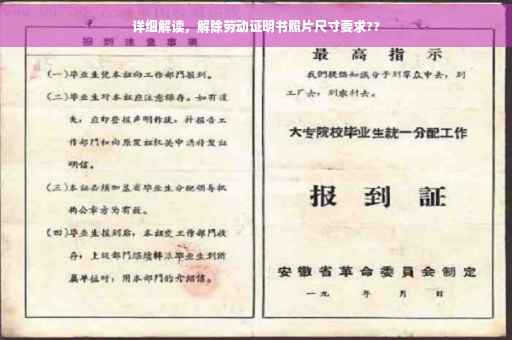 详细解读，解除劳动证明书照片尺寸要求??
报到注意事项
(一)毕业生凭本证向工作部门报到。
(二)毕业生对本证应注意保存。如有遗
失，应即登报声明作废，并报告工
作部门和向原发证机关申请补发证
明信。
(三)本证必须加盖省毕业生分配领导机
构公章方为有效。
(四)毕业生报到后，本证交工作部门收
存；上级部门继续
毕业生到所
属单位时，用本部门的介绍信。
最高指示
我们提倡知识分子到群众中去，到
工厂去，到农村去。
大专院校毕业生統一分配工作
报到証
安徽省革命委員会制定
一九 年 月 日